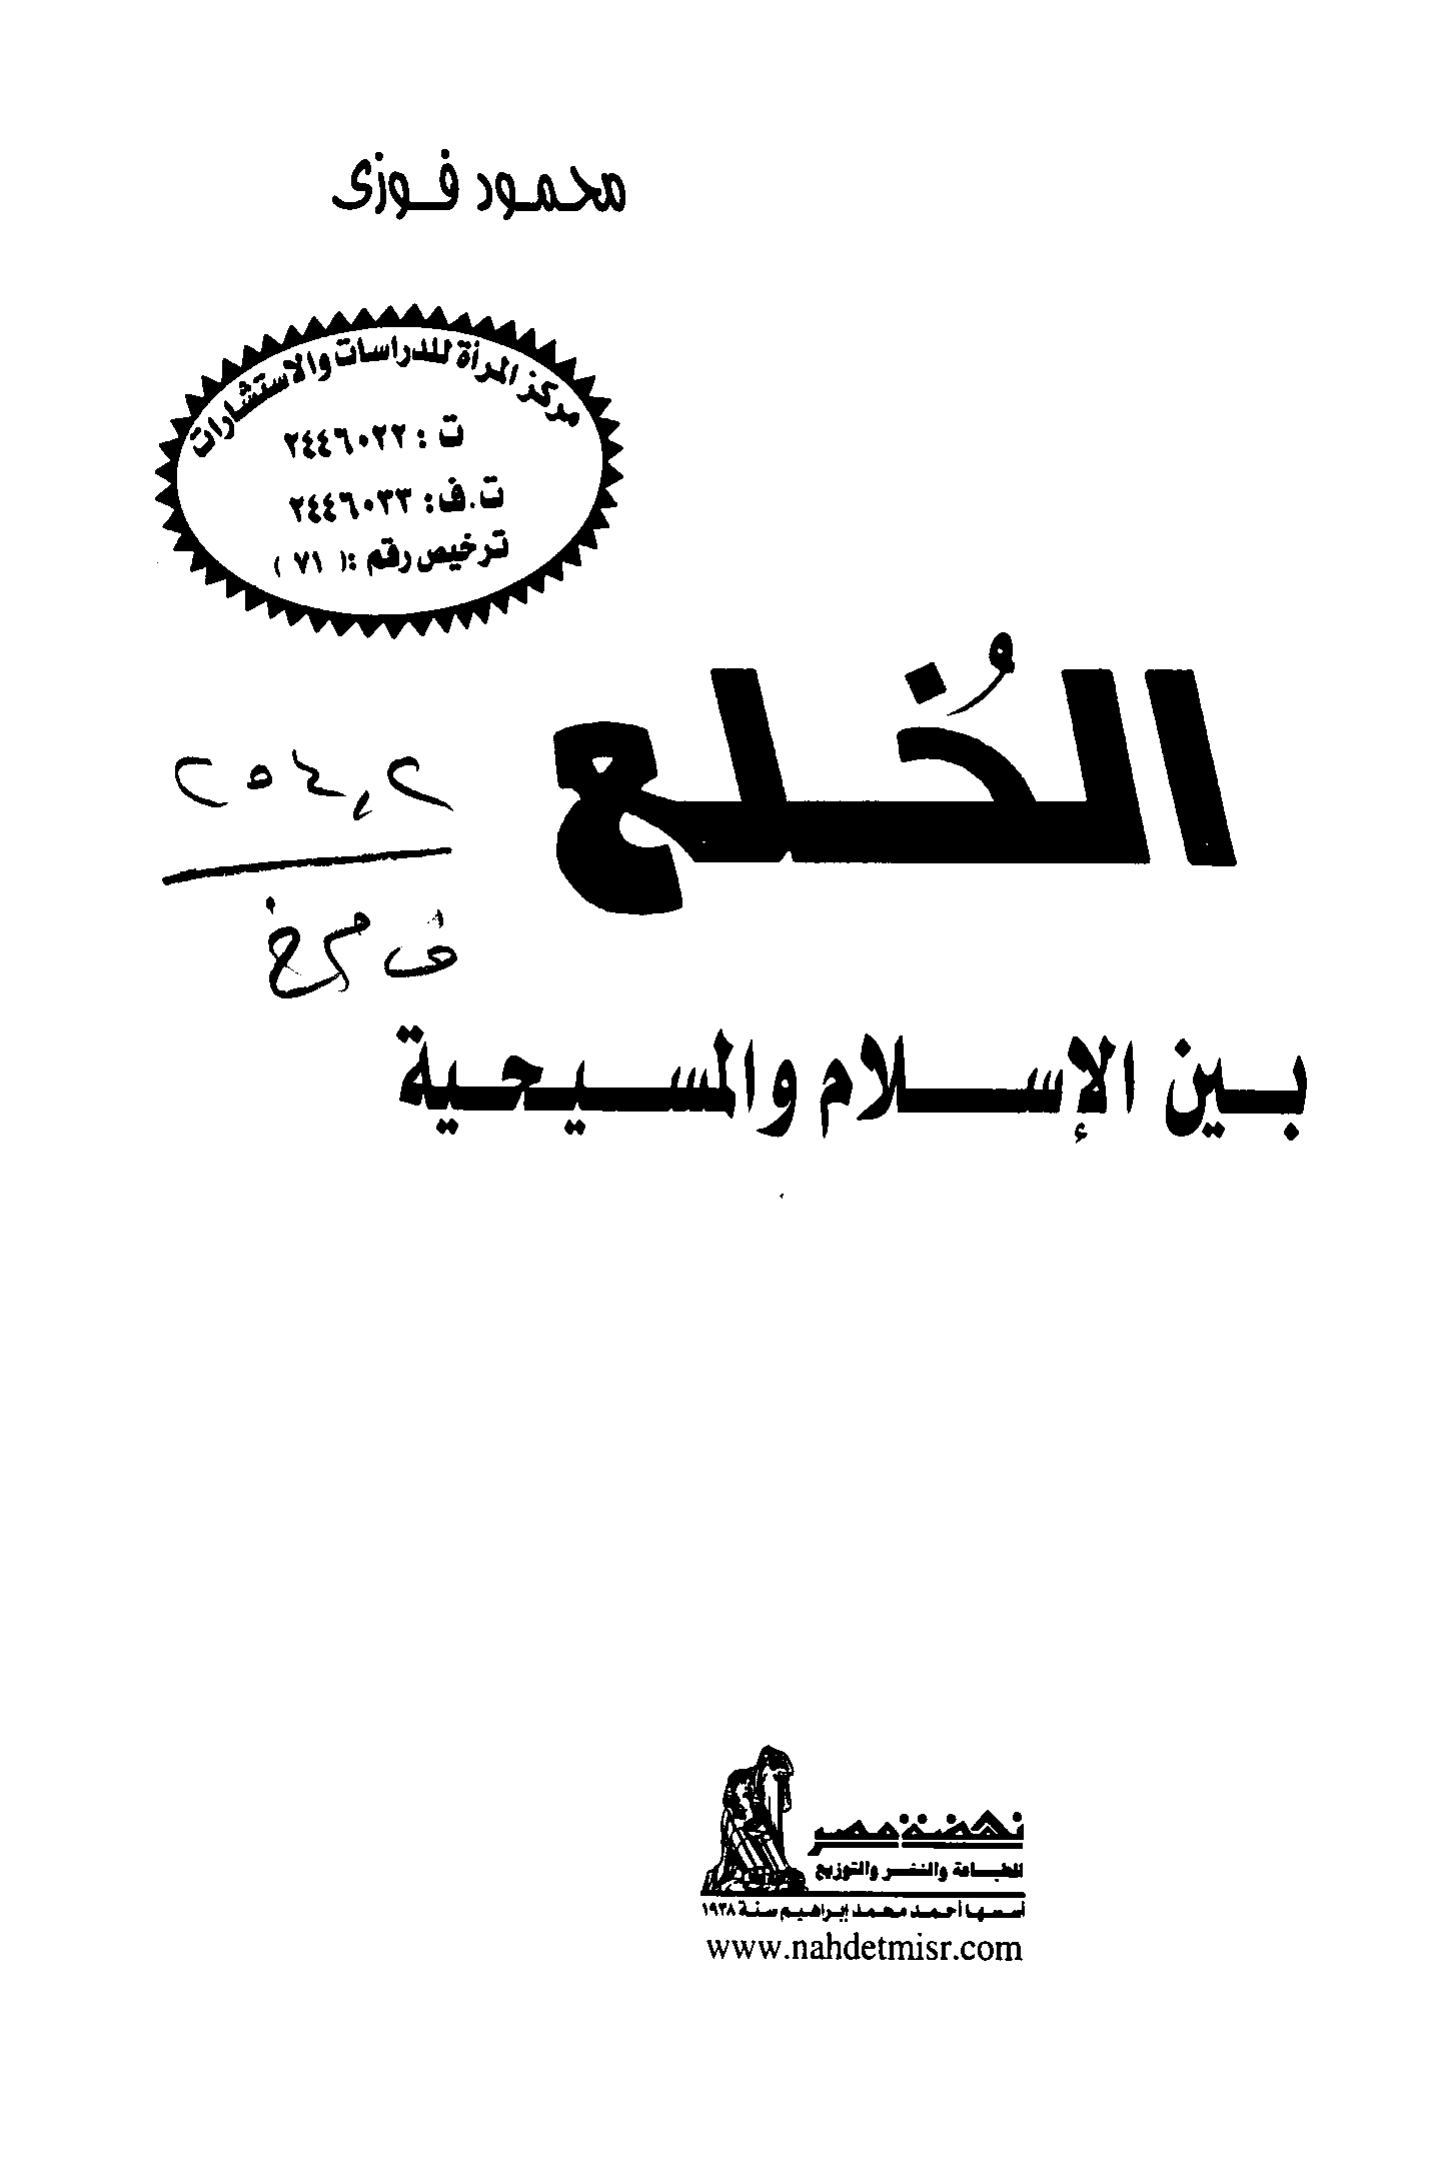 محمود فوزى
مركز المرأة للدراسات والاستشارات
ت : ٢٤٤٦٠٢٢
ت.ف: ٢٤٤٦٠٣٣
ترخيص رقم :( ٧١ )
الخُلع
بين الإسلام والمسيحية
نهضة مصر
للطباعة والنشر والتوزيع
أسسها أحمد محمد إبراهيم سنة ١٩٣٨
www.nahdetmisr.com